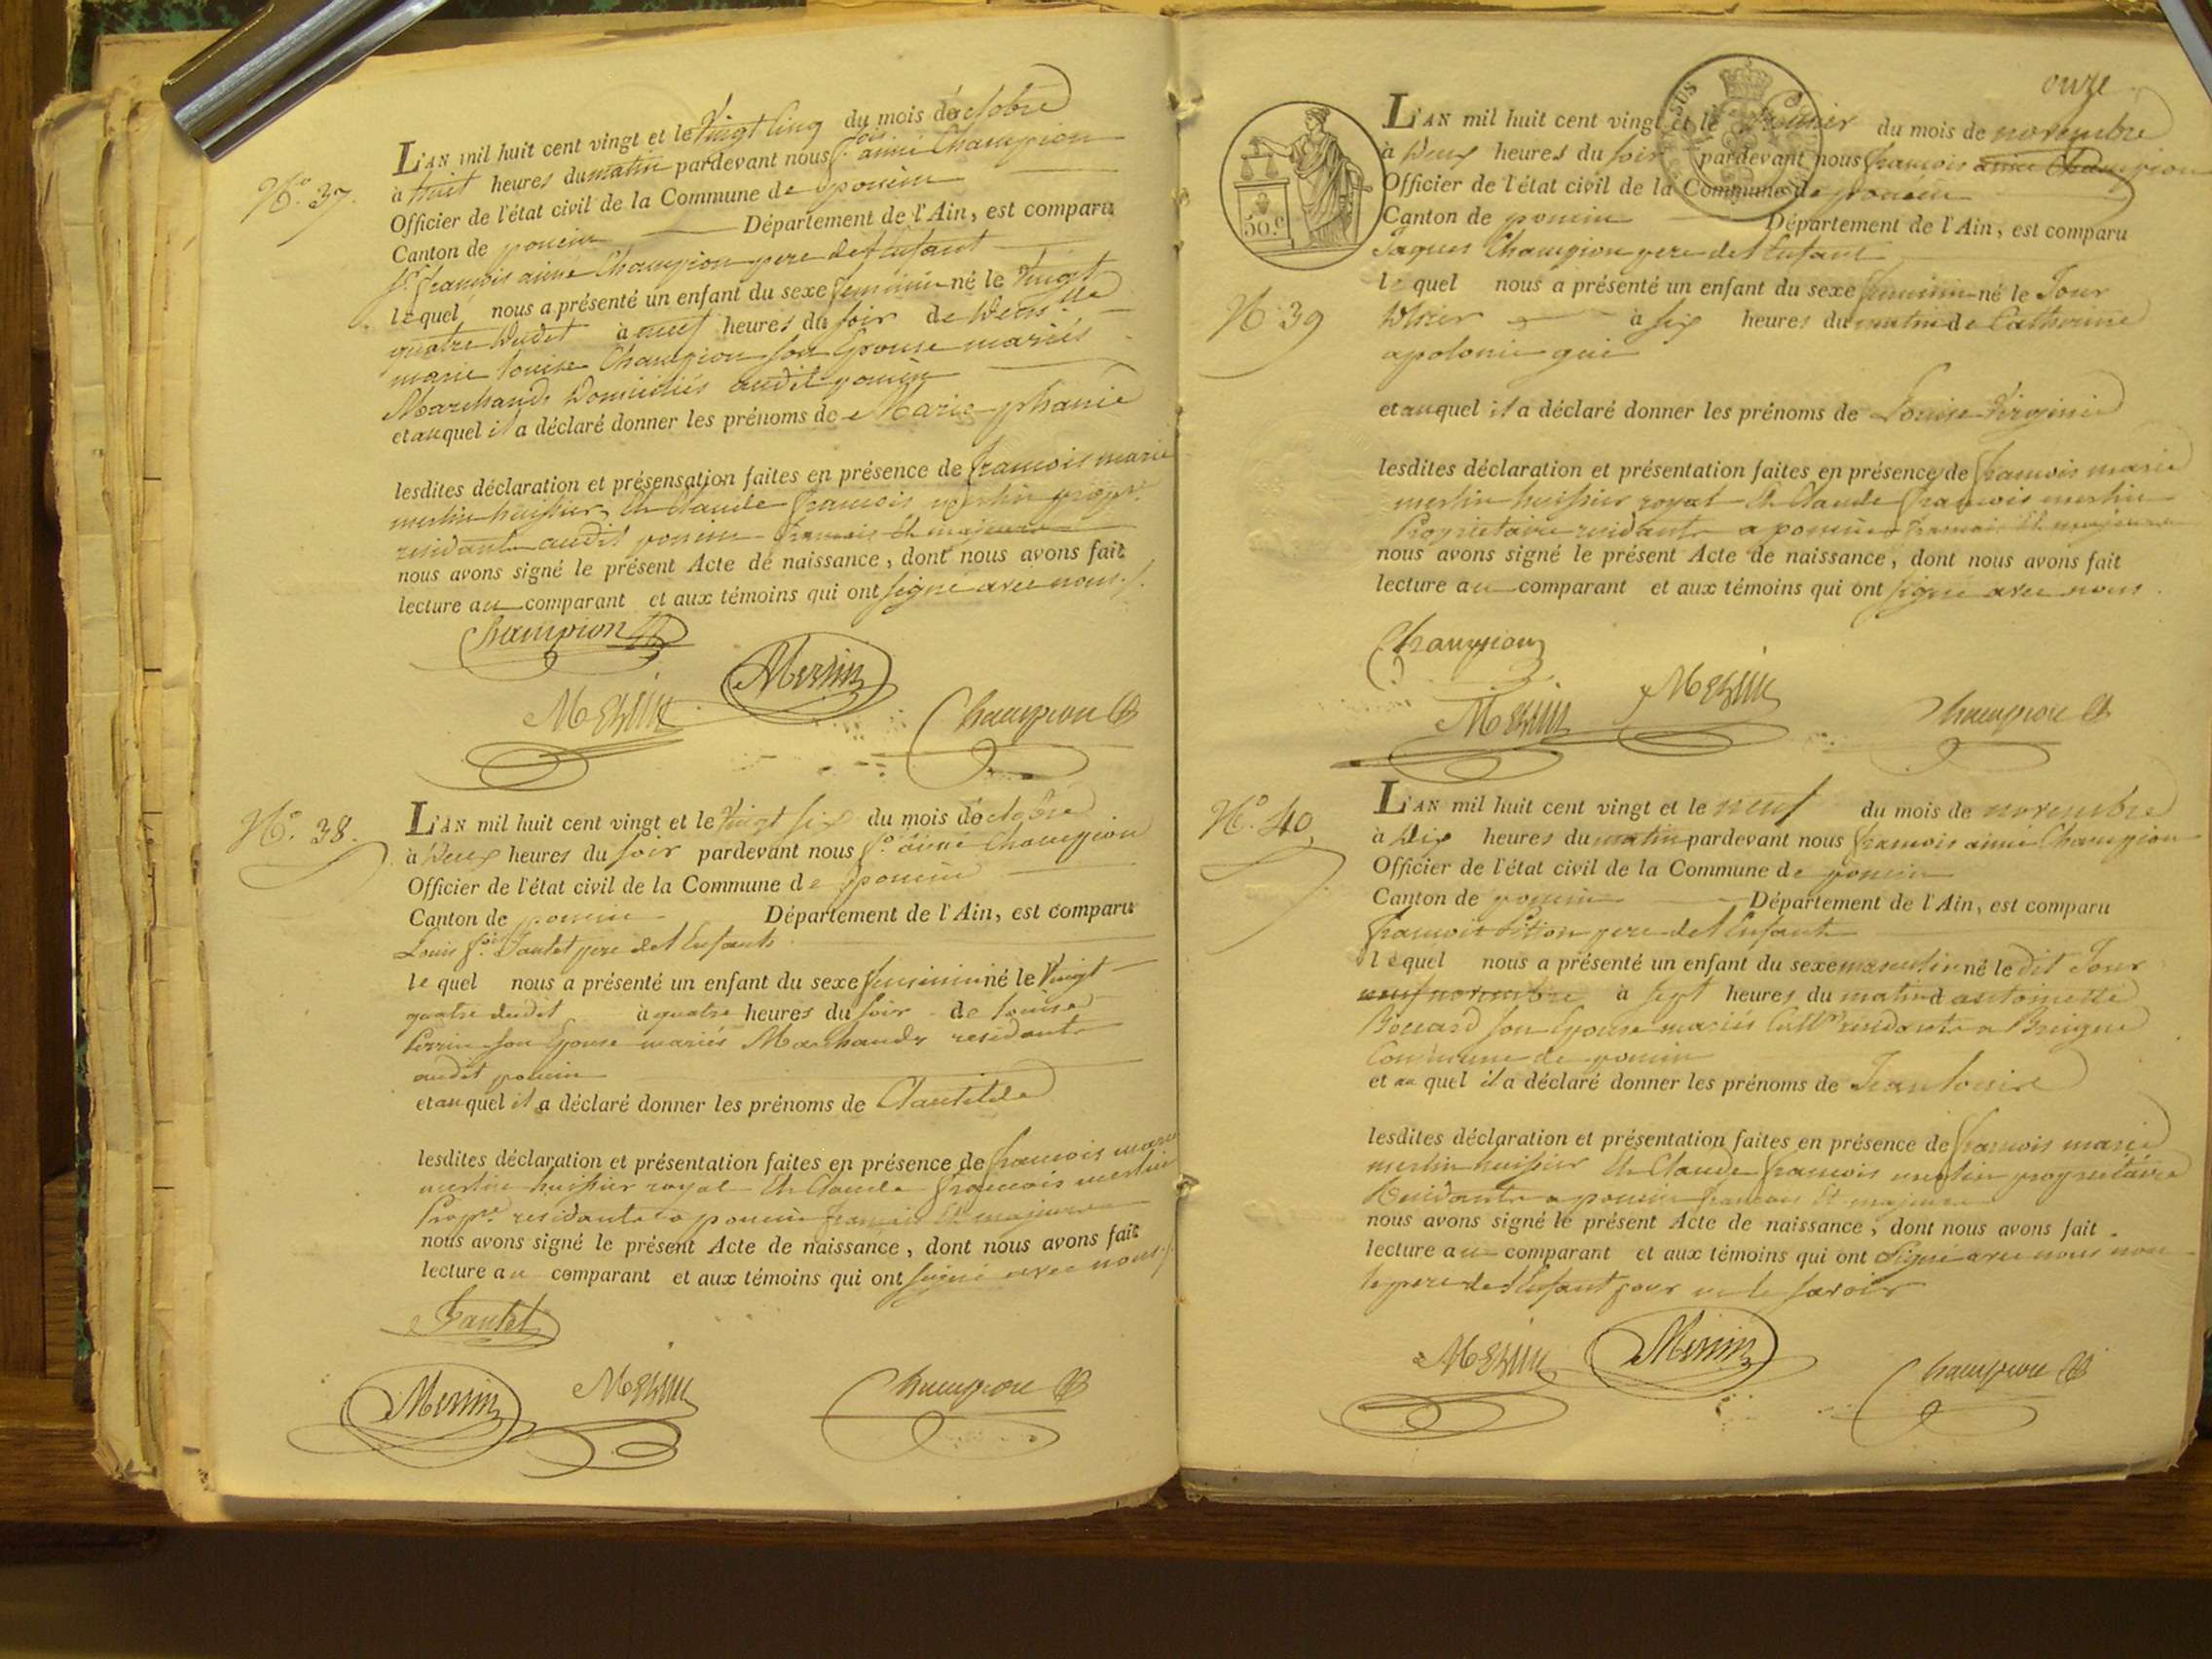 N.o 37.
L'AN mil huit cent vingt et le Vingt Cinq du mois d'octobre
à huit heures du matin pardevant nous f.ois aimé Champion
Officier de l'état civil de la Commune de poncin
Canton de poncin Département de l'Ain, est comparu
S.r françois aimé Champion pere de l'Enfant
lequel nous a présenté un enfant du sexe feminin né le Vingt
quatre dudit à neuf heures du soir de
marie louise Champion son Epouse mariés
Marchands Domiciliés audit poncin
et auquel il a déclaré donner les prénoms de Marie phanie
lesdites déclaration et présensation faites en présence de françois marie
merlin huissier, Et Claude françois merlin propre.
residants audit poncin francais Et majeurs
nous avons signé le présent Acte de naissance, dont nous avons fait
lecture au comparant et aux témoins qui ont signé avec nous./.
Champion
Merlin
Merlin
Champion
N.o 38.
L'AN mil huit cent vingt et le Vingt six du mois d'octobre
à Deux heures du soir pardevant nous f.s aimé Champion
Officier de l'état civil de la Commune de poncin
Canton de poncin Département de l'Ain, est comparu
Louis f.ois Jantet pere de l'Enfant
le quel nous a présenté un enfant du sexe feminin né le Vingt
quatre dudit à quatre heures du soir de louise
perrin son Epouse mariés Marchands residants
audit poncin
et auquel il a déclaré donner les prénoms de Clautilde
lesdites déclaration et présentation faites en présence de françois marie
merlin huissier royal Et Claude françois merlin
Propre residants a poncin francais Et majeurs
nous avons signé le présent Acte de naissance, dont nous avons fait
lecture au comparant et aux témoins qui ont signé avec nous./.
Jantet
Merlin
Merlin
Champion
onze
50.c
L'AN mil huit cent vingt et le Premier du mois de novembre
à Deux heures du soir pardevant nous françois aimé Champion
Officier de l'état civil de la Commune de poncin
Canton de poncin Département de l'Ain, est comparu
Jaques Champion pere de l'Enfant
le quel nous a présenté un enfant du sexe feminin né le Jour
N.o 39
D'hier à six heures du matin de Catherine
apolonie gui
et auquel il a déclaré donner les prénoms de Louise Virginie
lesdites déclaration et présentation faites en présence de françois marie
merlin huissier royal Et Claude françois merlin
Proprietaire residants a poncin francais Et majeurs
nous avons signé le présent Acte de naissance, dont nous avons fait
lecture au comparant et aux témoins qui ont signé avec nous.
Champion
Merlin
Merlin
Champion
N.o 40
L'AN mil huit cent vingt et le neuf du mois de novembre
à Dix heures du matin pardevant nous françois aimé Champion
Officier de l'état civil de la Commune de poncin
Canton de poncin Département de l'Ain, est comparu
françois pere de l'Enfant
lequel nous a présenté un enfant du sexe masculin né le dit Jour
neuf novembre à sept heures du matin d'antoinette
son Epouse mariés residants a
Commune de poncin
et au quel il a déclaré donner les prénoms de Jean louise
lesdites déclaration et présentation faites en présence de françois marie
merlin huissier Et Claude françois merlin proprietaire
Residants a poncin francais Et majeurs
nous avons signé le présent Acte de naissance, dont nous avons fait
lecture au comparant et aux témoins qui ont signé avec nous non
le pere de l'Enfant pour ne le savoir
Merlin
Merlin
Champion